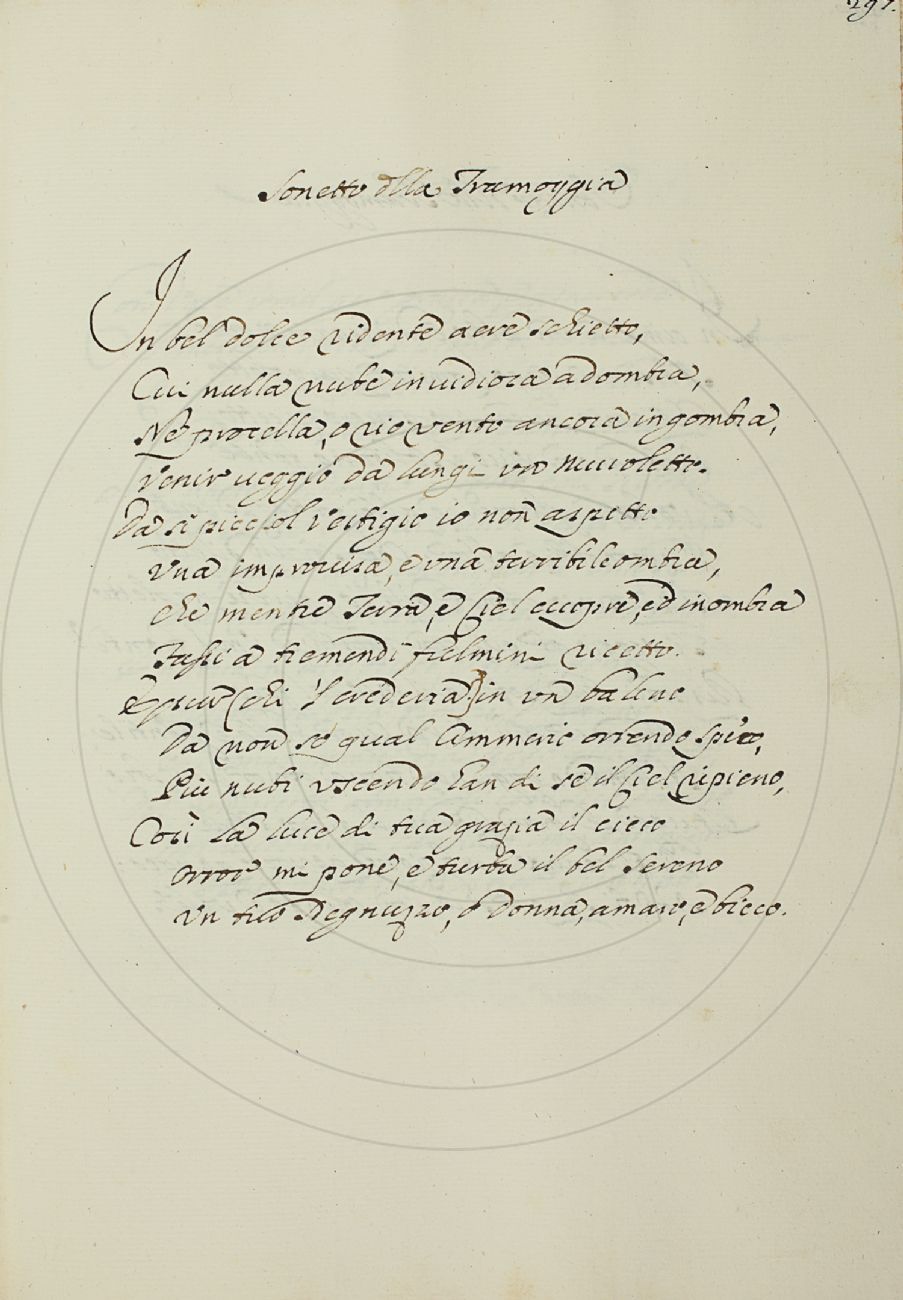 297.
Sonetto dlla Tramoggia
In bel dolce ridente aere schietto,
Cui nulla nube inuidiosa adombra,
Nè procella, o rio vento ancora ingombra,
Venir ueggio da lungi vn nuuoletto.
Da sì picciol vestigio io non aspetto
Vna improuisa, e vna terribile ombra,
Che mentre Terra, e Ciel ecopre, ed inombra
Fassi a tremendi fulmini ricetto.
E pur (chi 'l crederia?) in vn baleno
Da non so qual Cimmerio orrendo speco,
Più nubi vscendo han di se il Ciel ripieno,
Così la luce di tua grazia il cieco
Orror mi pone, e turba il bel sereno
Vn tuo Degnuzzo, o Donna, amaro, e bieco.